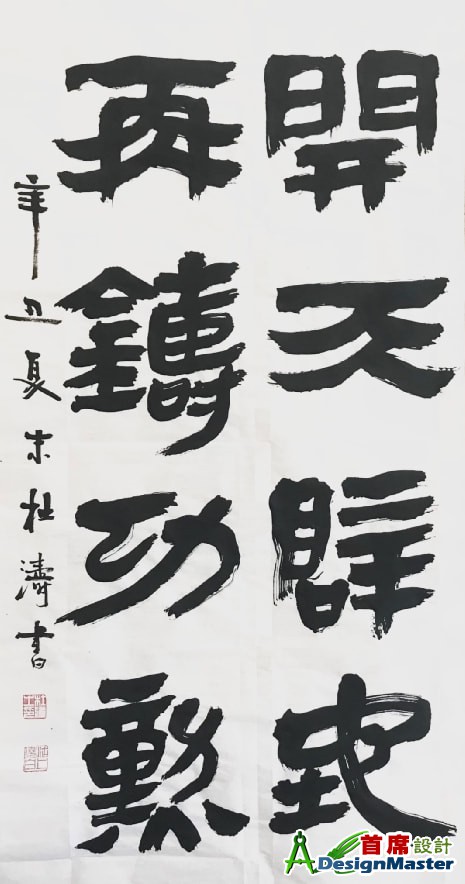 開天辟地
再鑄功勳
辛丑夏末杜濤書
首席設計
ADesignMaster